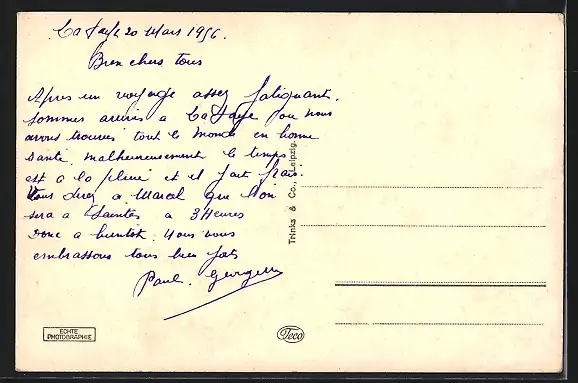 La Haye 20 Mars 1956.
Bien chers tous
Apres un voyage assez fatiguant.
sommes arrivés a La Haye ou nous
avons trouvés tout le monde en bonne
santé. malheureusement le temps
est a la pluie et il fait frais.
Vous direz a Marcel que l'on
sera a Saintes a 3 Heures
Donc a bientôt. Nous vous
embrassons tous bien fort
Paul. Georgette
Trinks & Co., Leipzig.
ECHTE
PHOTOGRAPHIE
Teco